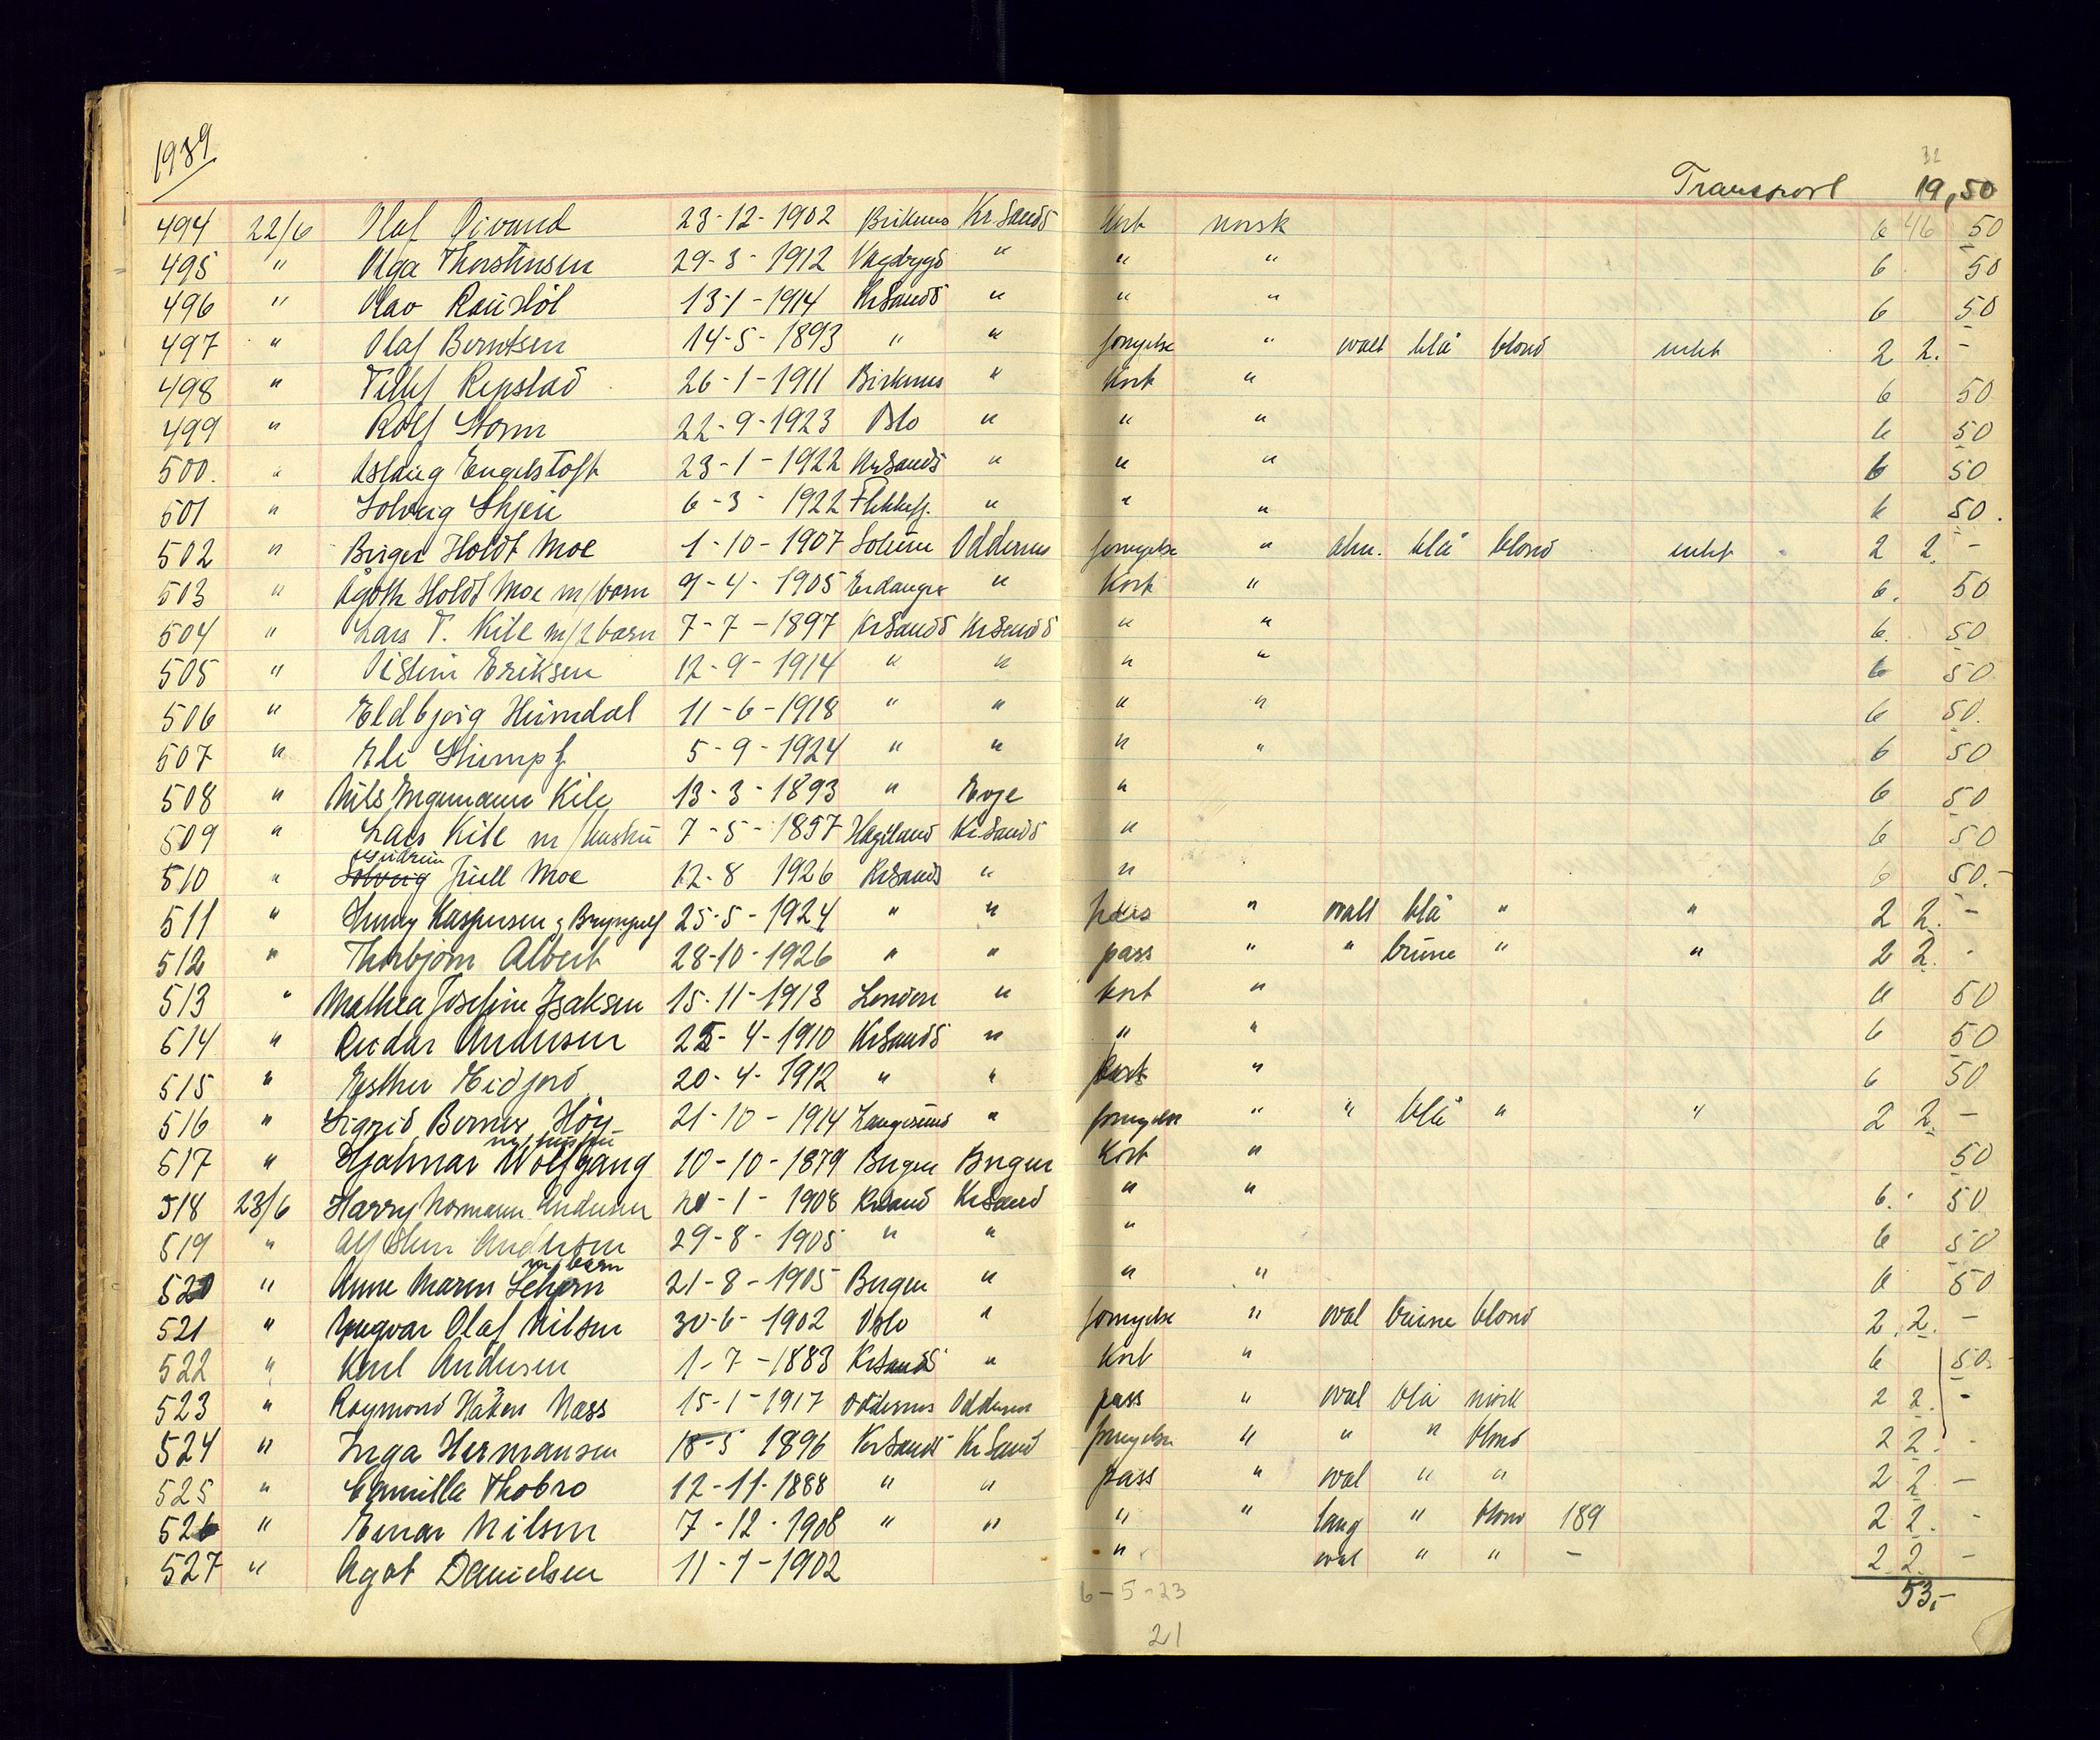 1939
Transport 32 19,50
494 22/6 Olaf Oivand 23-12-1902 Birkenes Kr Sands Kort norsk 6 46 50
495 " Olga Thorstensen 29-3-1912 Vågsbygd " " " 6 50
496 " Olav 13-1-1914 KrSands " " " 6 50
497 " Olaf Berntsen 14-5-1893 " " fornyelse " ovalt blå blond intet 2 2.-
498 " Tellef Repstad 26-1-1911 Birkenes " Kort " 6 50
499 " Rolf Storm 22-9-1923 Oslo " " " 6 50
500. " Aslaug Engelstoft 23-1-1922 KrSands " " " 6 50
501 " Solveig Skjeii 6-3-1922 Flekkefj. " " " 6 50.
502 " Birger Holdt Moe 1-10-1907 Solum Oddernes fornyelse " alm. blå blond intet 2 2.-
503 " Ågoth Holdt Moe m/barn 9-4-1905 " Kort " 6. 50
504 " Lars T. Kile m/2 barn 7-7-1897 KrSands KrSands " " 6. 50
505 " Oistein Eriksen 12-9-1914 " " " " 6 50.
506 " Eldbjørg Heimdal 11-6-1918 " " " " 6 50.
507 " Eli Stumpf 5-9-1924 " " " " 6 50
508 " Nils Kile 13-3-1893 " Evje " 6 50
509 " Lars Kile m/hustru 7-5-1897 Hægeland KrSands " 6 50
510 " Solveig Juell Moe 12-8 1926 KrSands " " 6 50.-
511 " Kaspersen 25-5-1924 " " pass " ovalt blå " " 2 2.-
512 " Thorbjørn Albert 28-10-1926 " " pass " " brune " " 2 2.-
513 " Mathea Josefine Isaksen 15-11-1913 London " kort " 6 50
514 " Reidar Andersen 25-4-1910 KrSands " " " 6 50
515 " Esther Eidjord 20-4-1912 " " Kort " 6 50
516 " Sigrid Berner Höy 21-10-1914 Langesund " fornyelse " " blå " " 2 2.-
517 " Hjalmar Wolfgang m/hustru 10-10-1879 Bergen Bergen Kort " 50
518 23/6 Harry Normann Andersen 20-1-1908 Krsand KrSand " " 6. 50
519 " Alf Andersen 29-8-1905 " " " 6 50
520 " Anne Marie m/barn 21-8-1905 Bergen " " " 6 50
521 " Yngvar Olaf Nilsen 30-6-1902 Oslo " fornyelse " oval brune blond 2. 2.-
522 " Karl Andersen 1-7-1883 KrSands " Kort " 6 50.
523 " Raymond Håken Næss 15-1-1917 Oddernes Oddernes pass " oval blå mörk 2 2.-
524 " Inga Hermansen 18-5 1896 KrSands KrSand fornyelse " " " blond 2 2.-
525 " Camilla Thobro 12-11-1888 " " pass " oval " " 2 2.-
526 " Einar Nilsen 7-12-1908 " " " " lang " blond 189 2 2.-
527 " Agot Danielsen 11-7-1902 " oval " " - 2 2.-
6-5-23 53,-
21